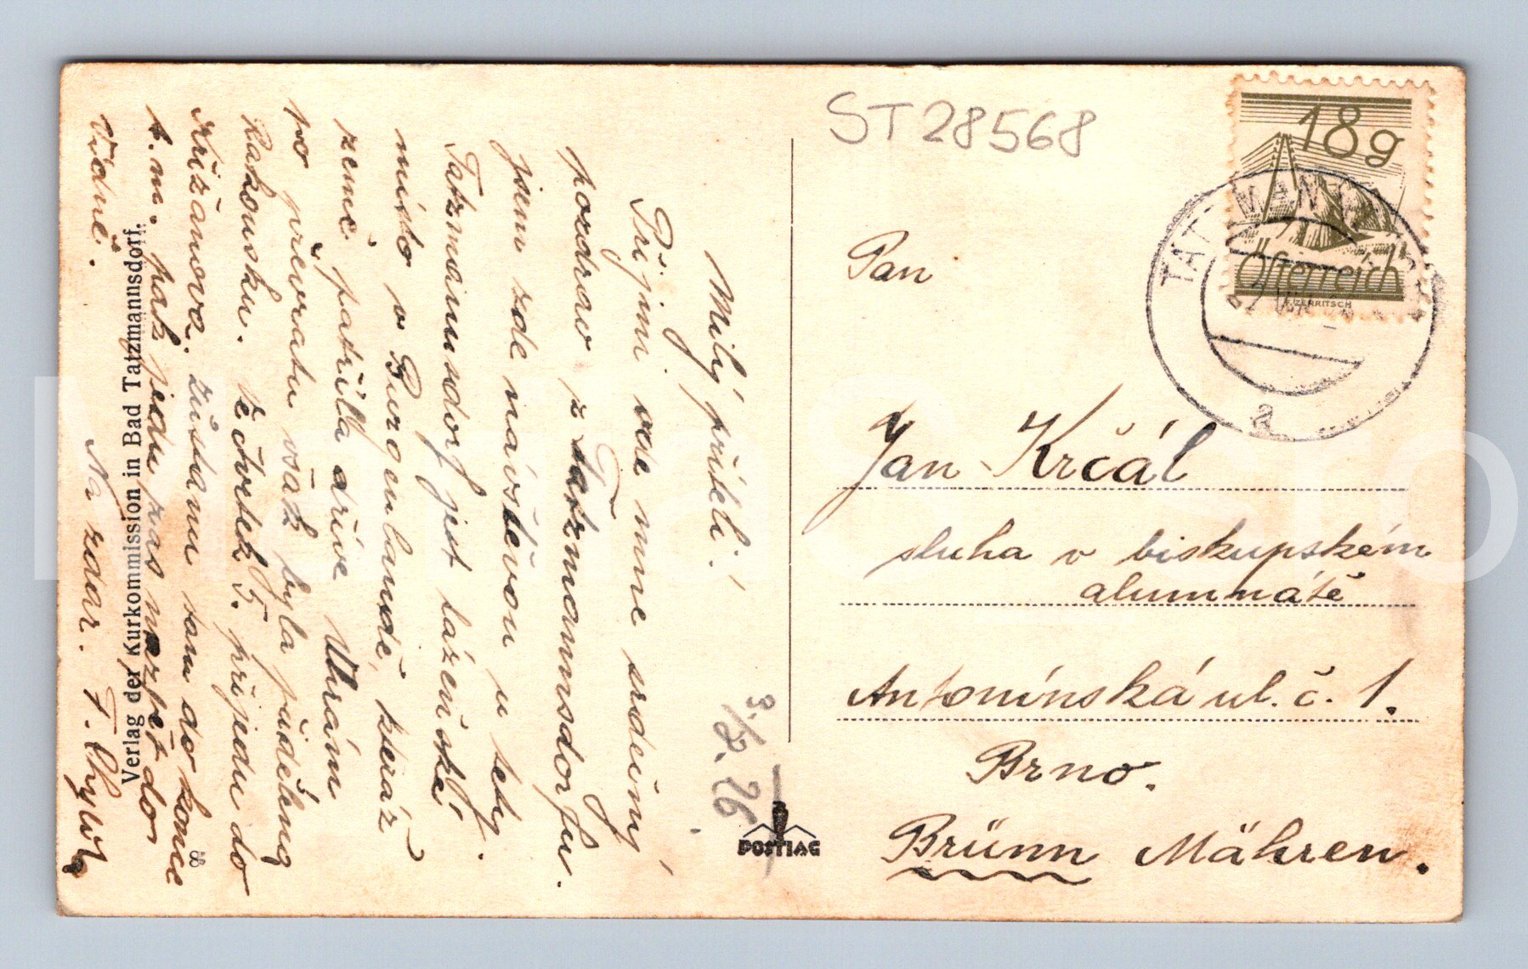 ST28568
18g
Österreich
TATZMANNSDORF
a
Pan
Jan Krčál
sluha v biskupském
alumnátě
Antonínská ul. č. 1.
Brno.
Brünn Mähren.
Milý příteli!
Přijmi ode mne srdečný
pozdrav z Tatzmannsdorfu.
jsem zde návštěvou u tety.
Tatzmannsdorf jest lázeňské
místo v Burgenlandě, kteráž
země patřila dříve Uhrám
po převratu však byla přidělena
Rakousku. Ve čtvrtek 5. přijedu do
Křižanova. zůstanu tam do konce
t. m. pak jedu zas nazpět do
Vídně.
Na zdar.
3./8. 26
POSTIAG
Verlag der Kurkommission in Bad Tatzmannsdorf.